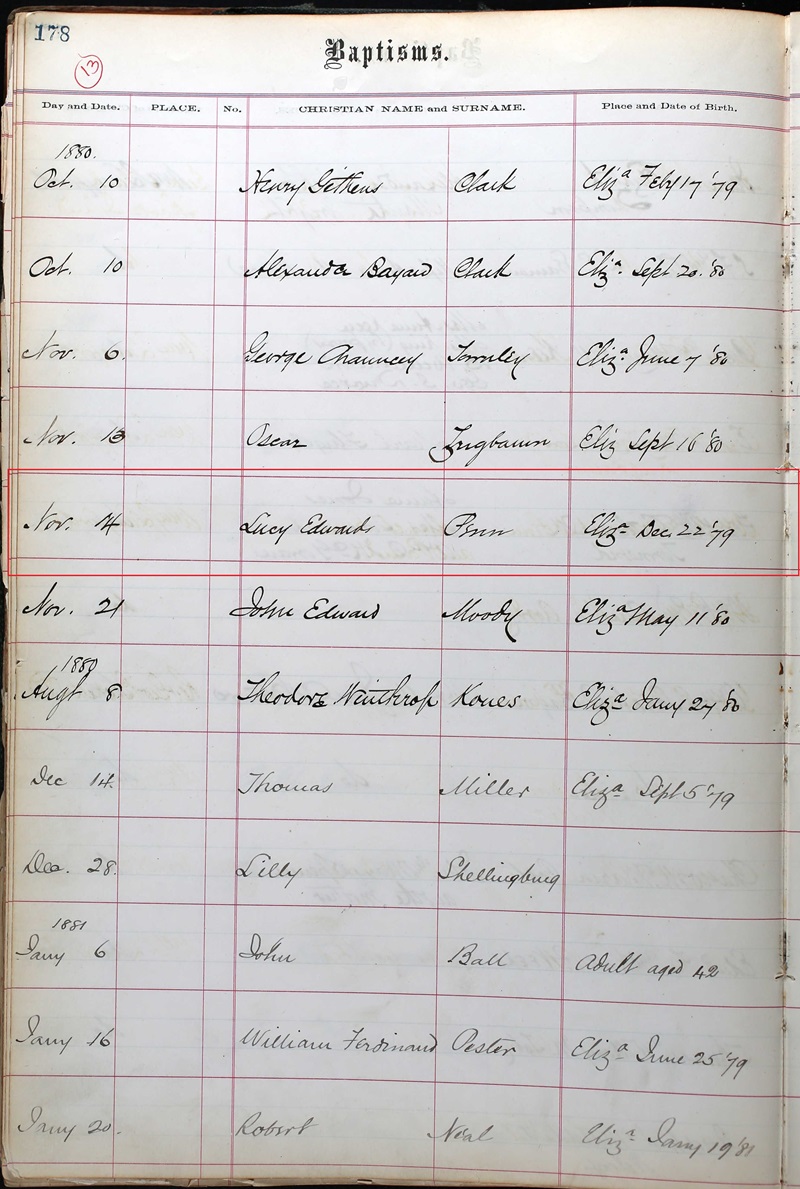 178
13
Baptisms.
Day and Date. PLACE. No. CHRISTIAN NAME and SURNAME. Place and Date of Birth.
1880.
Oct. 10 Henry Githens Clark Eliza Feby 17 '79
Oct. 10 Alexander Bayard Clark Eliza. Sept 20. '80
Nov. 6. George Chauncey Townley Eliza. June 7 '80
Nov. 13 Oscar Eliz Sept 16 '80
Nov. 14 Lucy Edwards Penn Eliza Dec. 22 '79
Nov. 21 John Edward Moody Eliza May 11 '80
1880
Augt 8 Theodore Winthrop Koues Eliza Jany 27 '80
Dec 14. Thomas Miller Eliza Sept 5 '79
Dec. 28. Lilly Shellingburg
1881
Jany 6 John Ball Adult aged 42
Jany 16 William Ferdinand Oester Eliza June 25 '79
Jany 20. Robert Neal Eliza Jany 19 '81